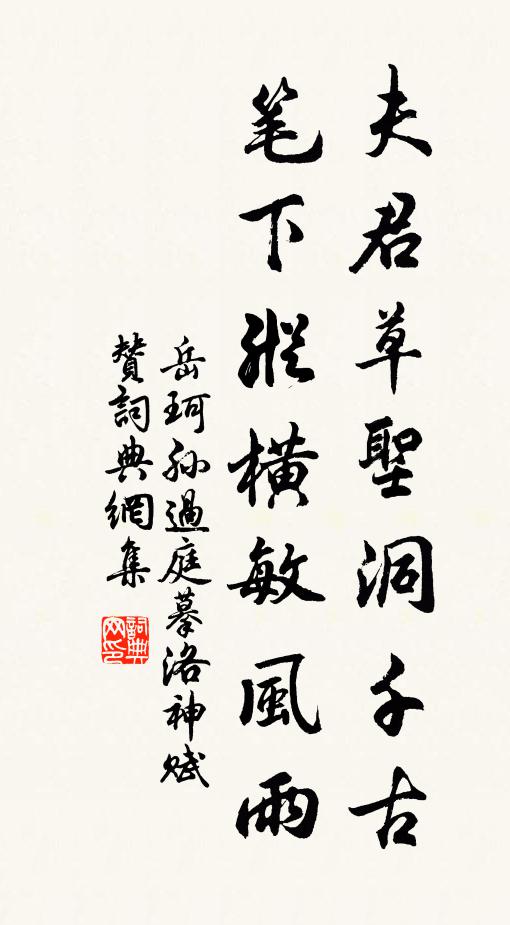 夫君草聖洞千古
笔下縱橫敏風雨
岳珂孫過庭摹洛神賦
賛詞典網集
詞典网印